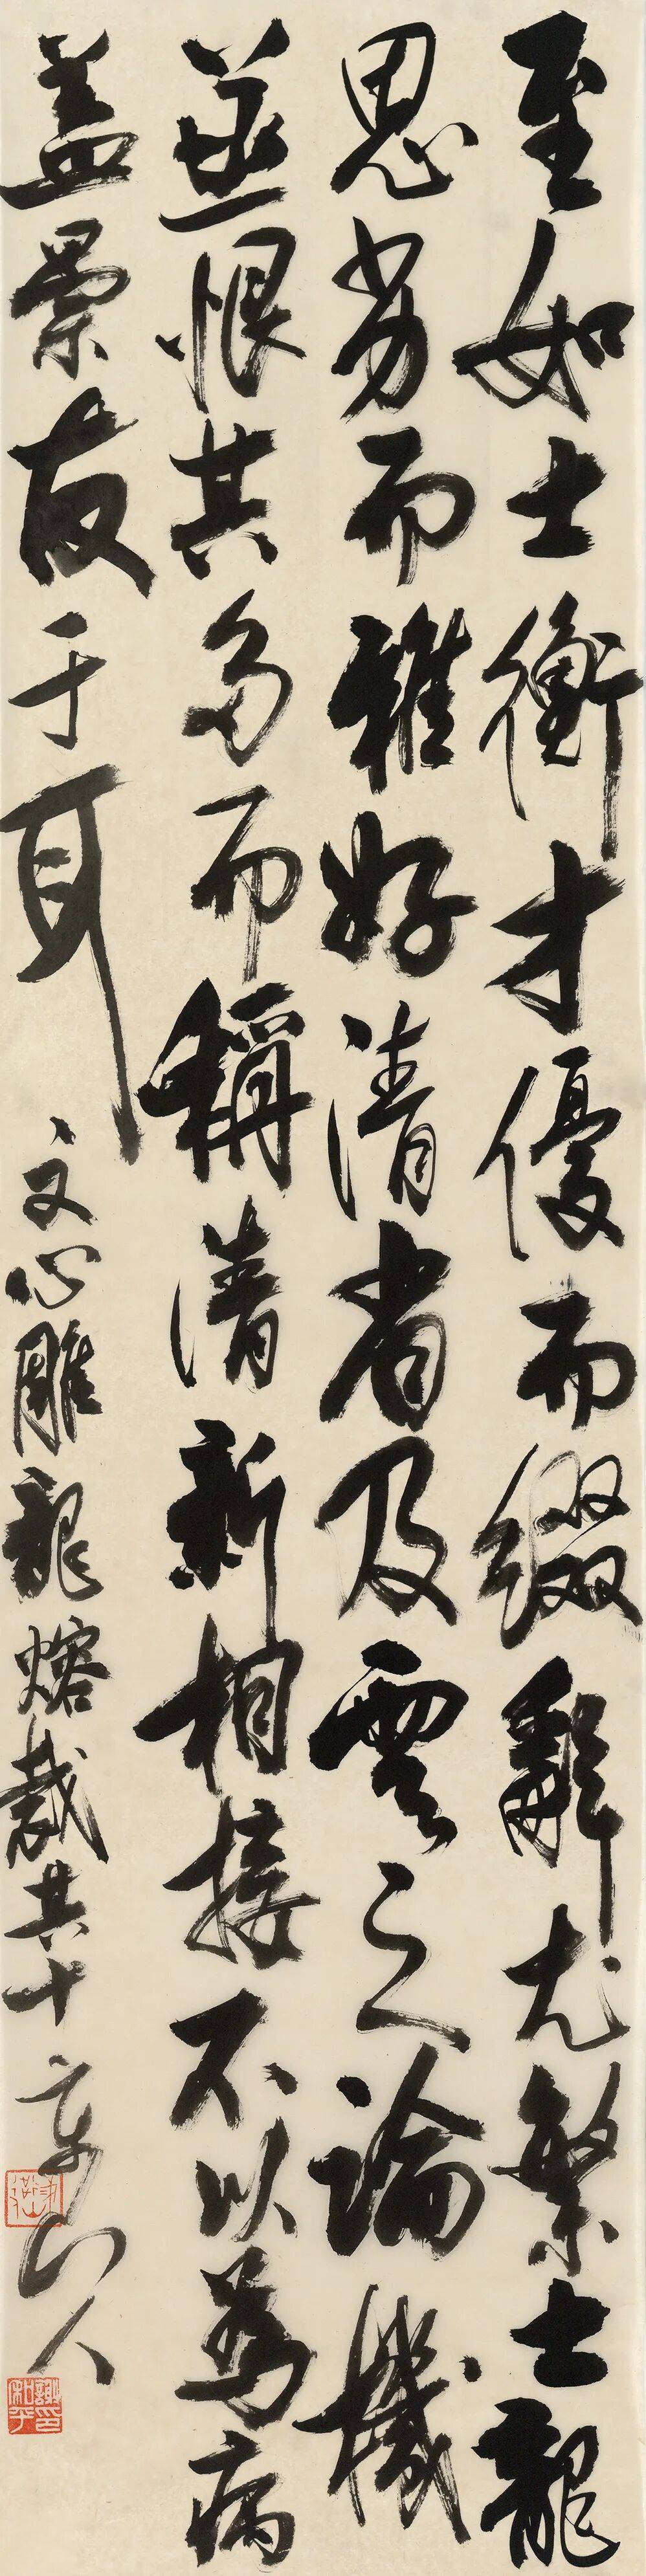 至如士衡才優而綴辭尤繁士龍
思劣而雅好清省及雲之論機
亟恨其多而稱清新相接不以為病
蓋崇友于耳
文心雕龍熔裁其十
山人
謝和平印